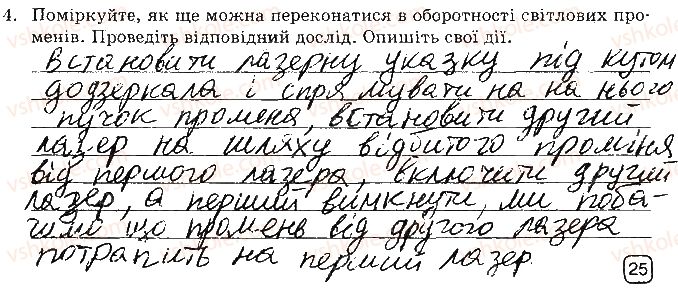 4. Поміркуйте, як ще можна переконатися в оборотності світлових про-
менів. Проведіть відповідний дослід. Опишіть свої дії.
Встановити лазерну указку під кутом
додзеркала і спрямувати на на нього
пучок променя, встановити другий
лазер на шляху відбитого проміня
від першого лазера, включити другий
лазер, а перший вимкнути, ми поба-
чимо що промень від другого лазера
потрапить на перший лазер
25